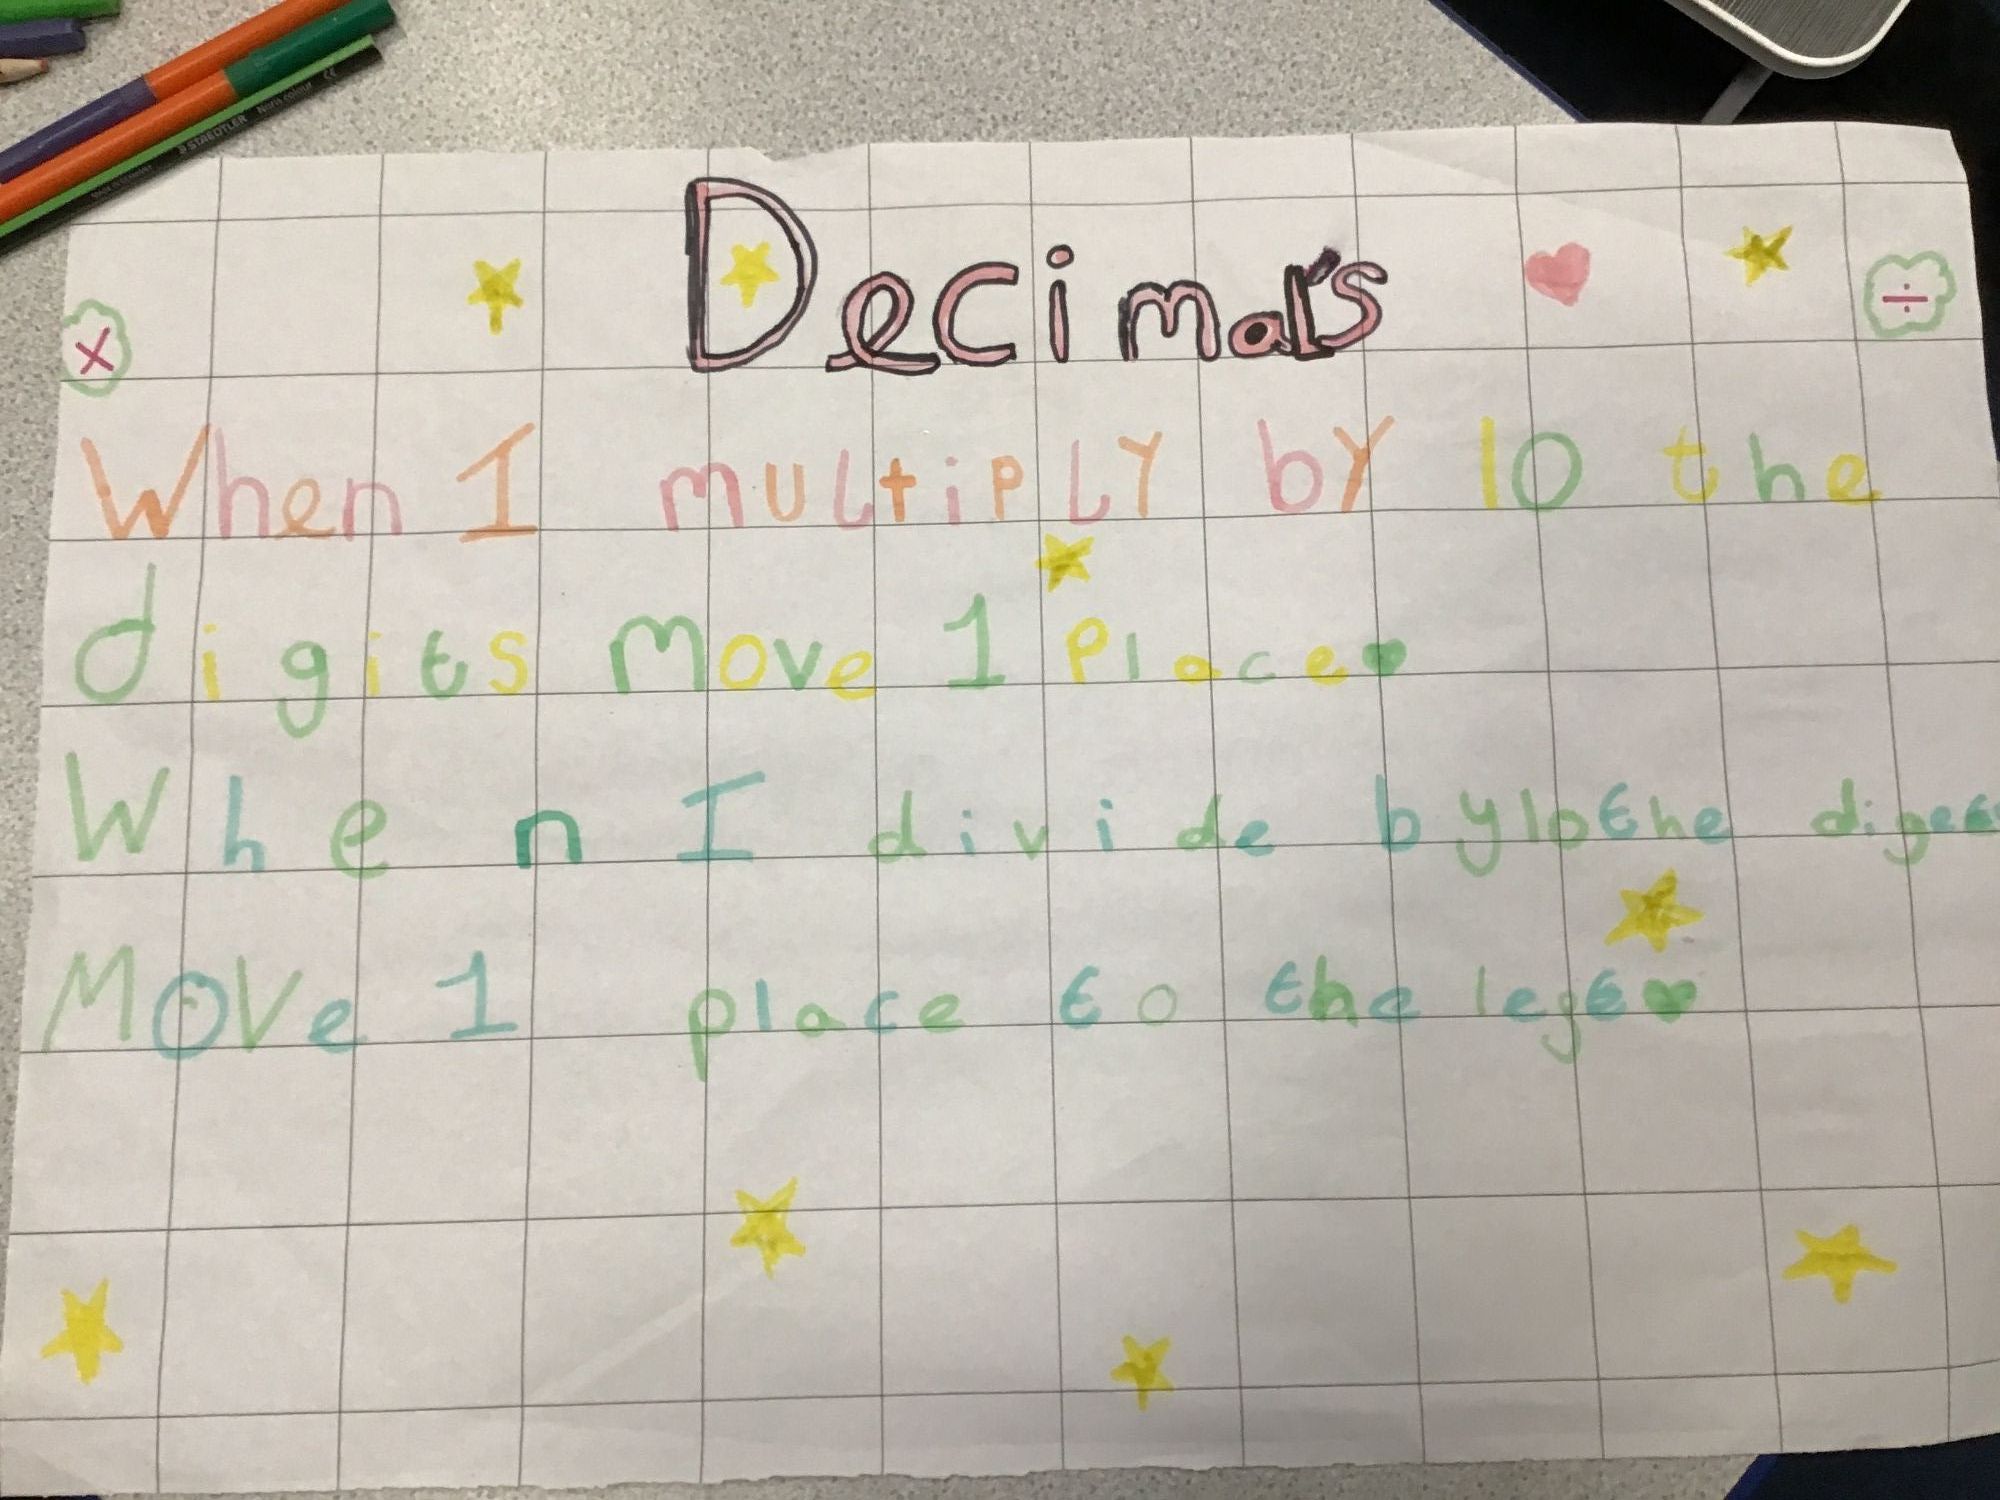 STAEDTLER Noris colour
Decimal's
×
÷
When I multiply by 10 the
digits move 1 place
When I divide by 10 the digets
Move 1 place to the legt